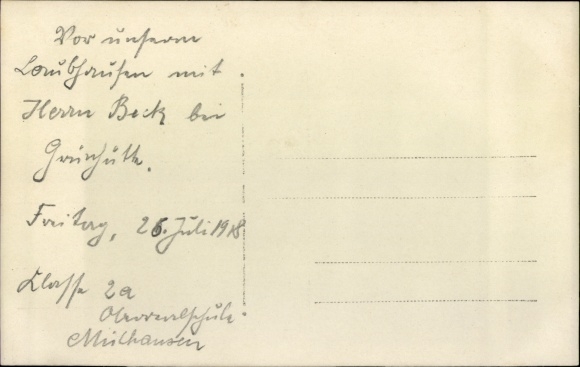 Vor unserm
Laubhaufen mit
Herrn Beck bei
Grünhütte.
Freitag, 26. Juli 1918
Klasse 2a
Oberrealschule
Mülhausen